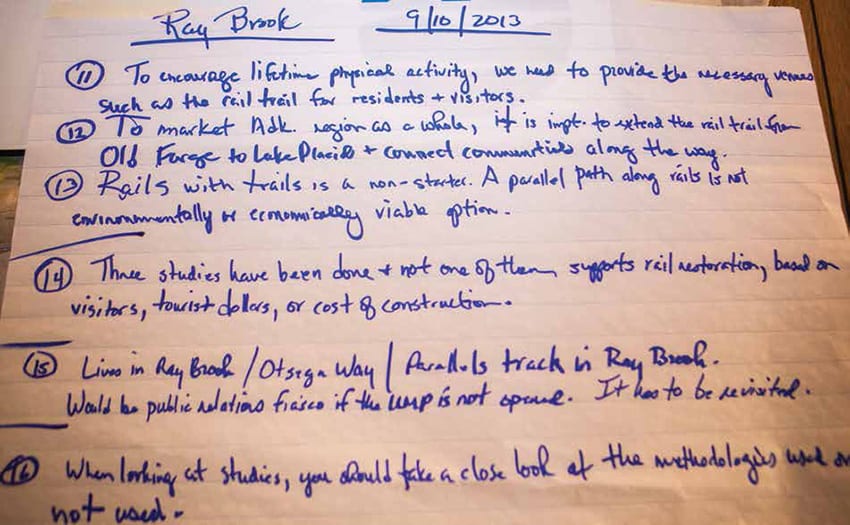 Ray Brook 9/10/2013
11 To encourage lifetime physical activity, we need to provide the necessary venues
such as the rail trail for residents + visitors.
12 To market Adk. region as a whole, it is impt. to extend the rail trail from
Old Forge to Lake Placid + connect communities along the way.
13 Rails with trails is a non-starter. A parallel path along rails is not
environmentally or economically viable option.
14 Three studies have been done + not one of them supports rail restoration, based on
visitors, tourist dollars, or cost of construction.
15 Lives in Ray Brook / Otsega Way / Parallels track in Ray Brook.
Would be public relations fiasco if the UMP is not opened. It has to be revisited.
16 When looking at studies, you should take a close look at the methodologies used or
not used.